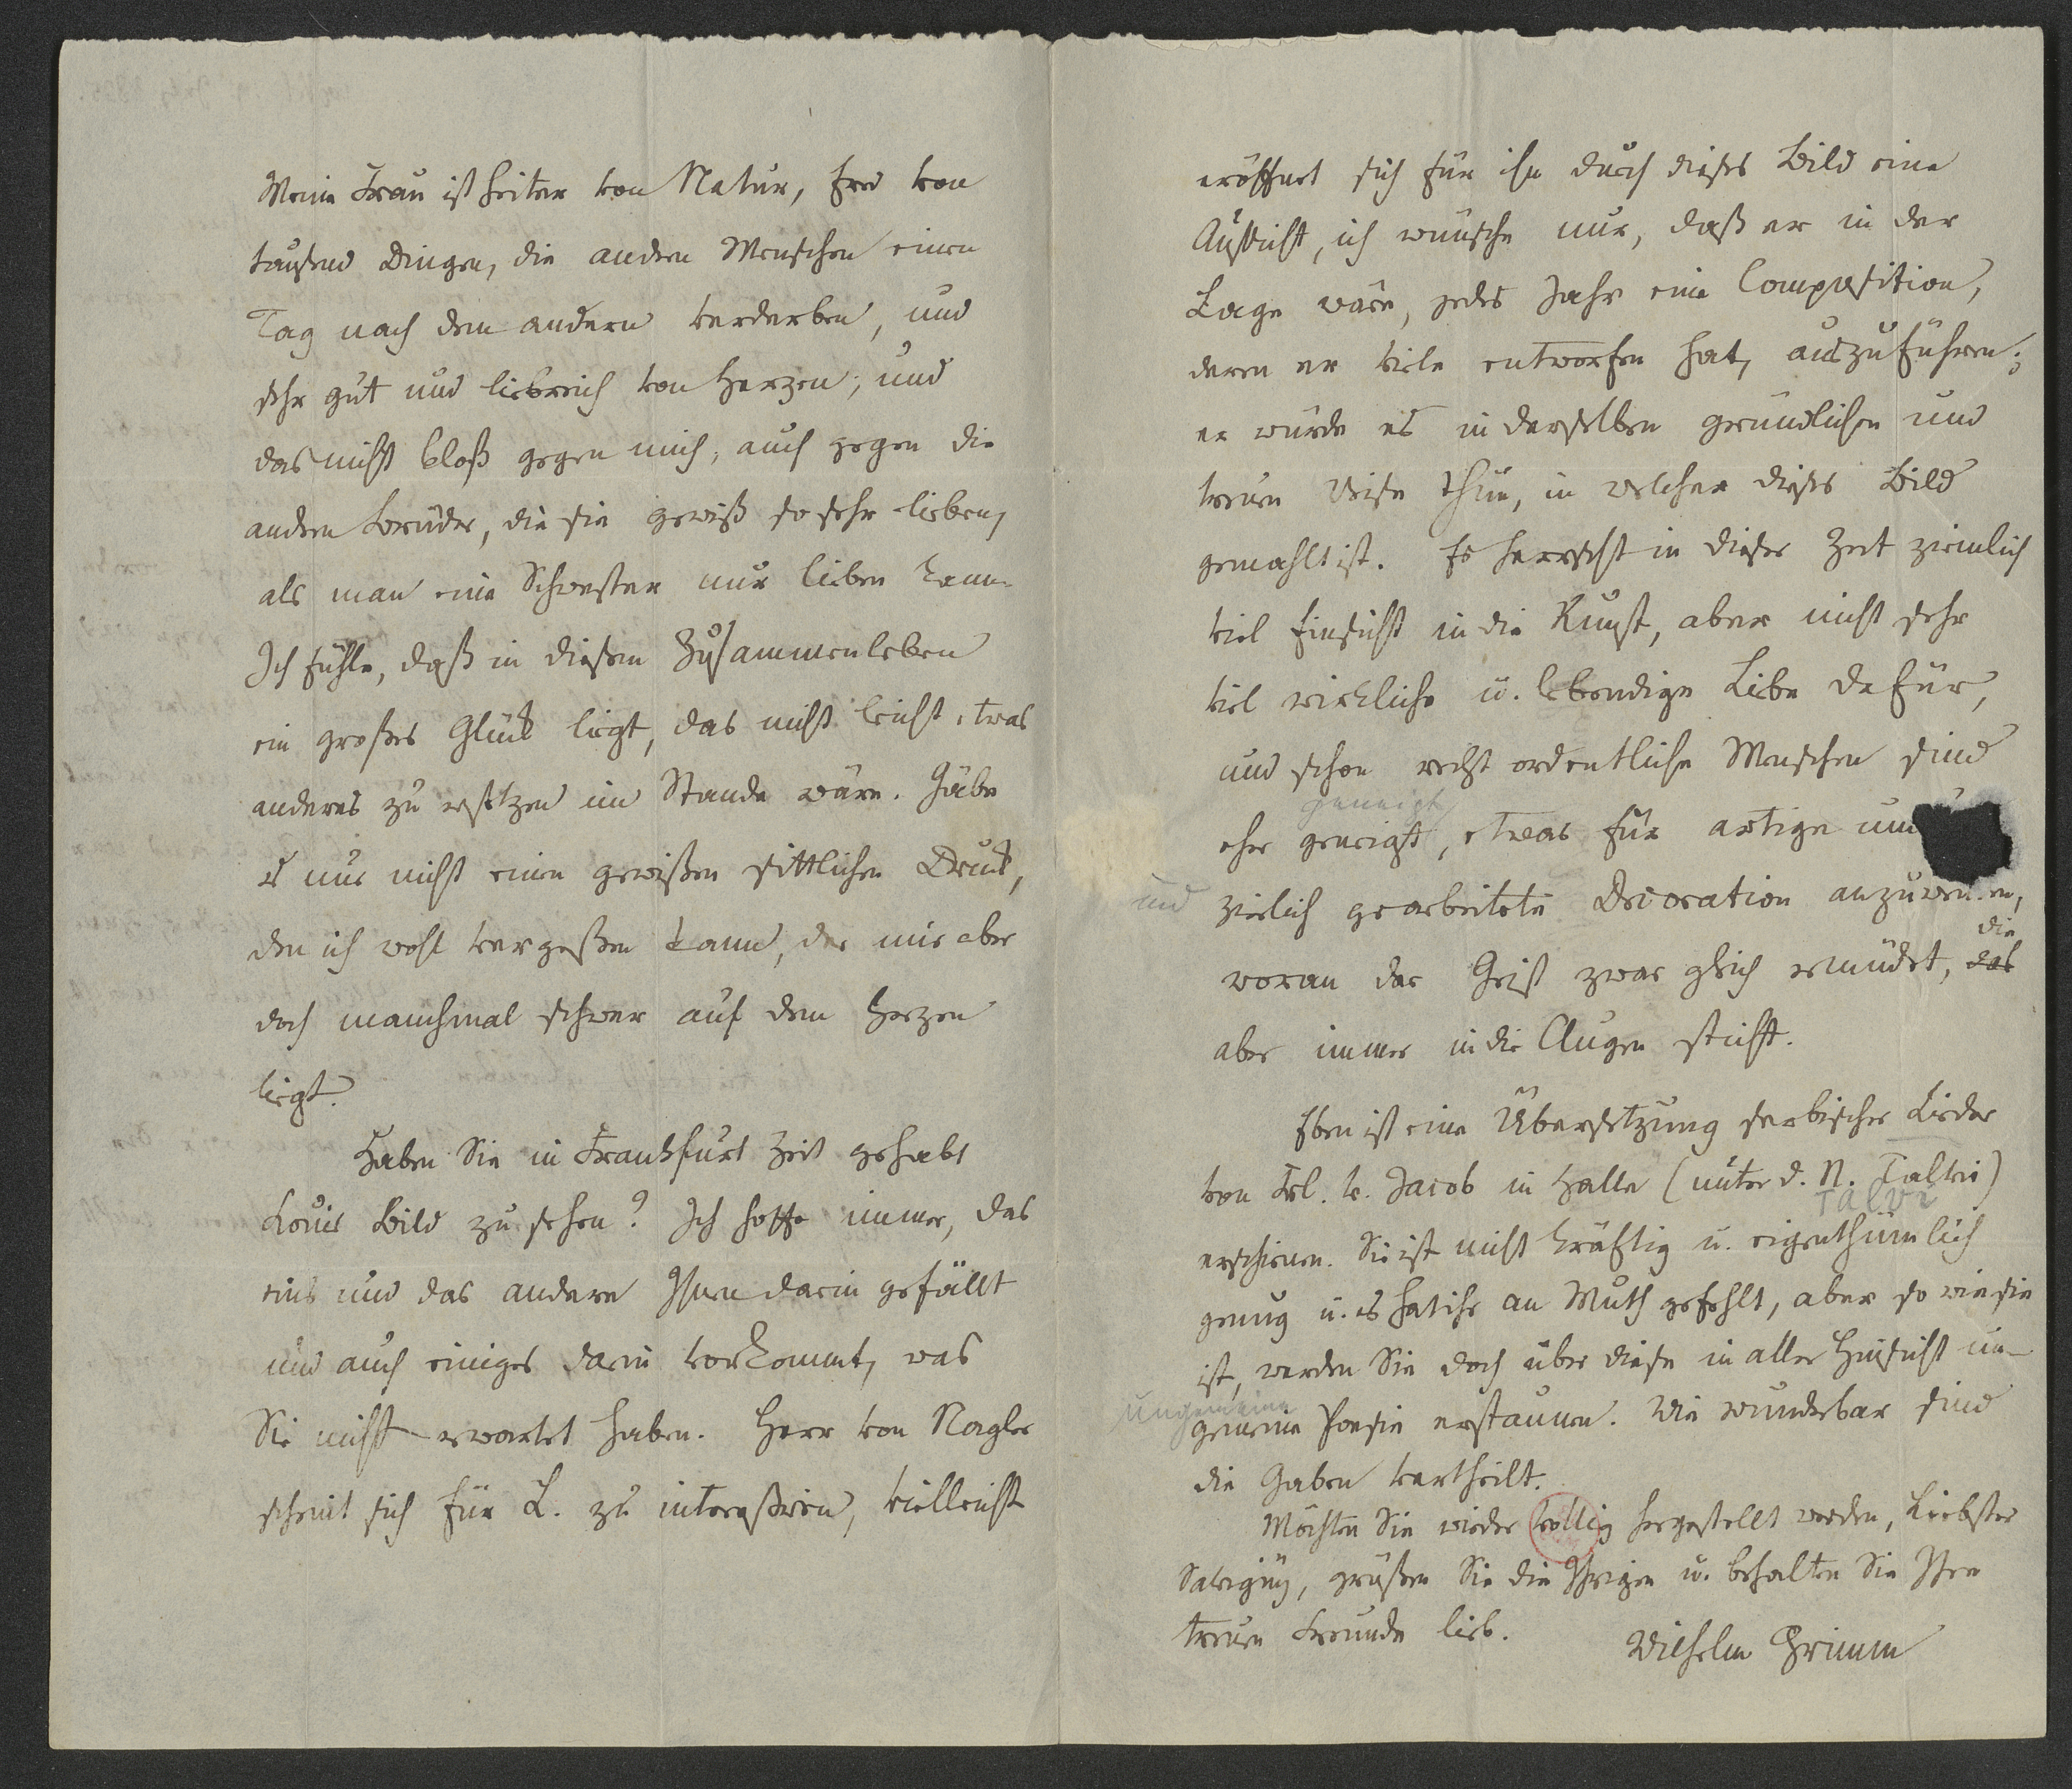 Meine Frau ist heiter von Natur, frei von
tausend Dingen, die andern Menschen einen
Tag nach dem andern verderben, und
sehr gut und liebreich von Herzen; und
das nicht bloß gegen mich, auch gegen die
andern Brüder, die sie gewiß so sehr lieben,
als man eine Schwester nur lieben kann.
Ich fühle, daß in diesem Zusammenleben
ein großes Glück liegt, das nicht leicht etwas
anderes zu ersetzen im Stande wäre. Gäbe
es nur nicht einen gewißen sittlichen Druck,
den ich wohl vergeßen kann, der mir aber
doch manchmal schwer auf dem Herzen
liegt.
Haben Sie in Frankfurt Zeit gehabt
Louis Bild zu sehen? Ich hoffe immer, das
eins und das andere Ihnen darin gefällt
und auch einiges darin vorkommt, was
Sie nicht erwartet haben. Herr von Nagler
scheint sich für L. zu intereßiren, vielleicht
eröffnet sich für ihn durch dieses Bild eine
Aussicht, ich wünsche nur, daß er in der
Lage wäre, jedes Jahr eine Composition,
deren er viele entworfen hat, auszuführen;
er würde es in derselben gründlichen und
treuen Weise thun, in welcher dieses Bild
gemahlt ist. Es herrscht in dieser Zeit ziemlich
viel Einsicht in die Kunst, aber nicht sehr
viel wirkliche u. lebendige Liebe dafür,
und schon recht ordentliche Menschen sind
geneigt
eher geneigt, etwas für artige und
und zierlich gearbeitete Decoration anzuwenden,
die
woran der Geist zwar gleich ermüdet, das
aber immer in die Augen sticht.
Eben ist eine Übersetzung serbischer Lieder
von Frl. v. Jacob in Halle (unter d. N. Talvi)
Talvi
erschienen. Sie ist nicht kräftig u. eigenthümlich
genug u. es hat ihr an Muth gefehlt, aber so wie sie
ist, werden Sie doch über diese in aller Hinsicht un-
ungemeine
gemeine Poesie erstaunen. Wie wunderbar sind
die Gaben vertheilt.
Möchten Sie wieder völlig hergestellt werden, Liebster
Savigny, grüßen Sie die Ihrigen u. behalten Sie Ihren
treuen Freunde lieb.
Wilhelm Grimm